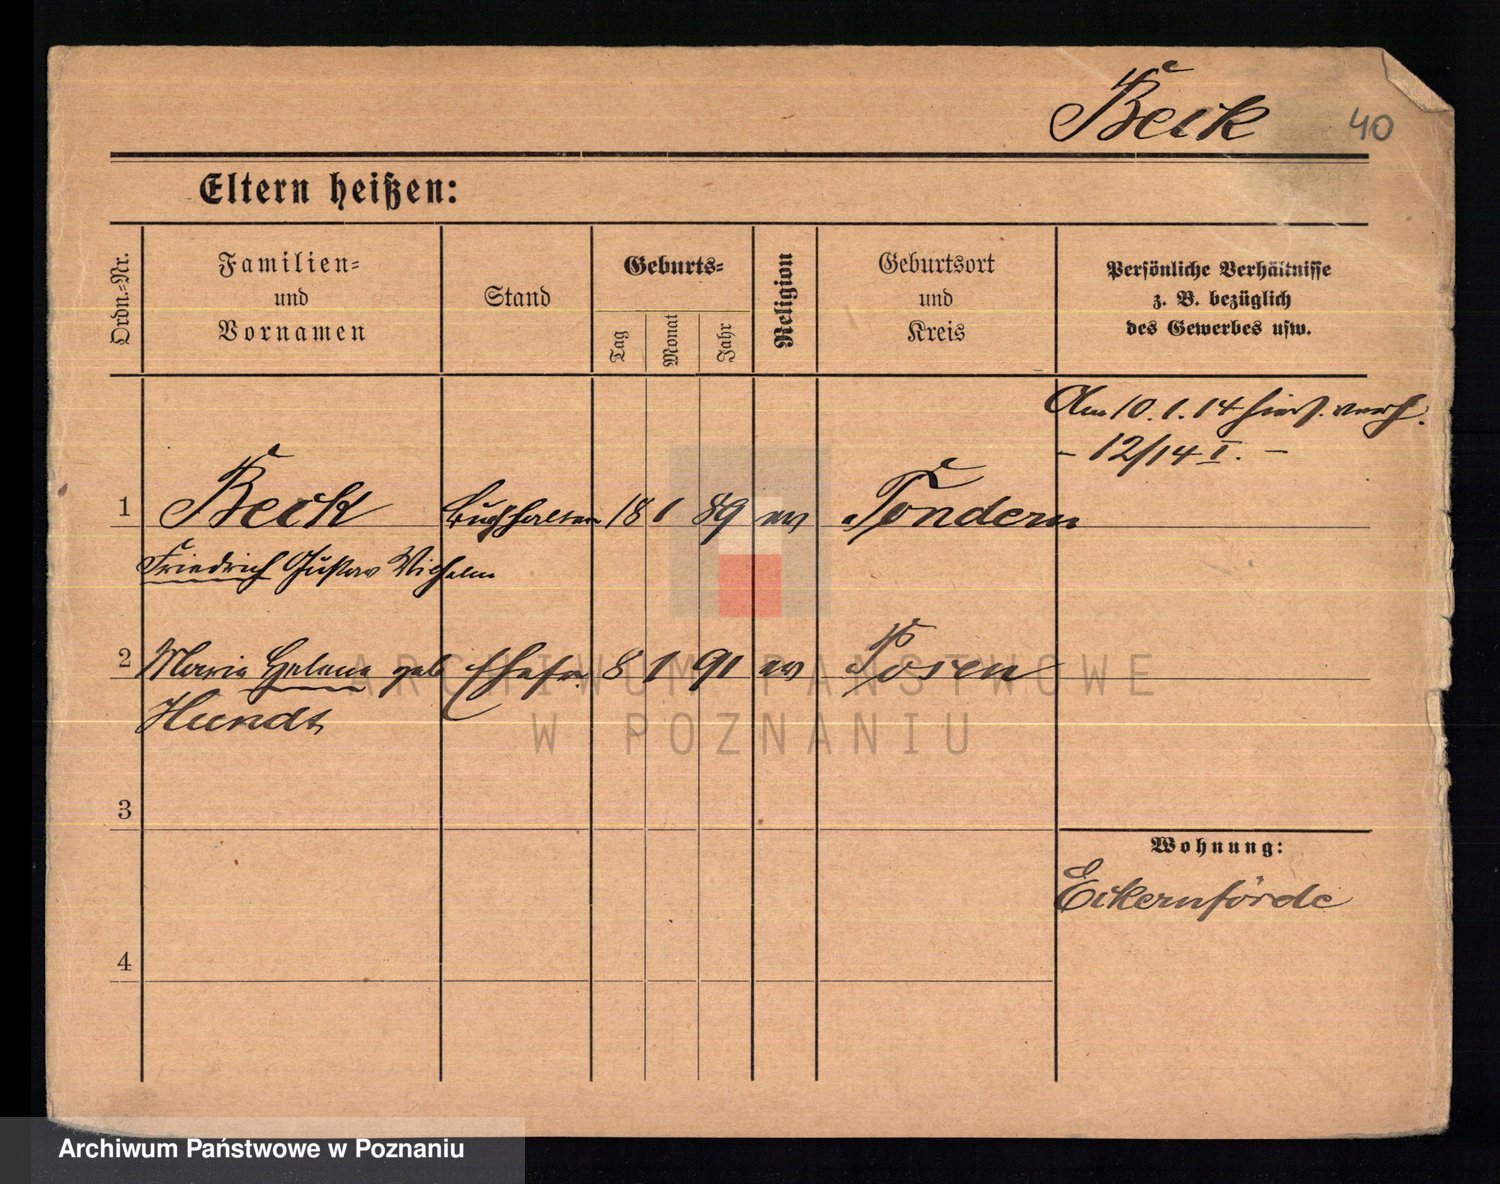 Beck 40
Eltern heißen:
Ordn.-Nr.
Familien-
und
Vornamen
Stand
Geburts-
Tag
Monat
Jahr
Religion
Geburtsort
und
Kreis
Persönliche Verhältnisse
z. B. bezüglich
des Gewerbes usw.
Am 10.1.14 hies. verh.
- 12/14 I. -
1 Beck Buchhalter 18 1 89 ev Tondern
Friedrich Gustav Wilhelm
2 Maria Helene geb Ehefr. 8 1 91 ev Posen
Hundt
3
Wohnung:
Eckernförde
4
ARCHIWUM PAŃSTWOWE
W POZNANIU
Archiwum Państwowe w Poznaniu